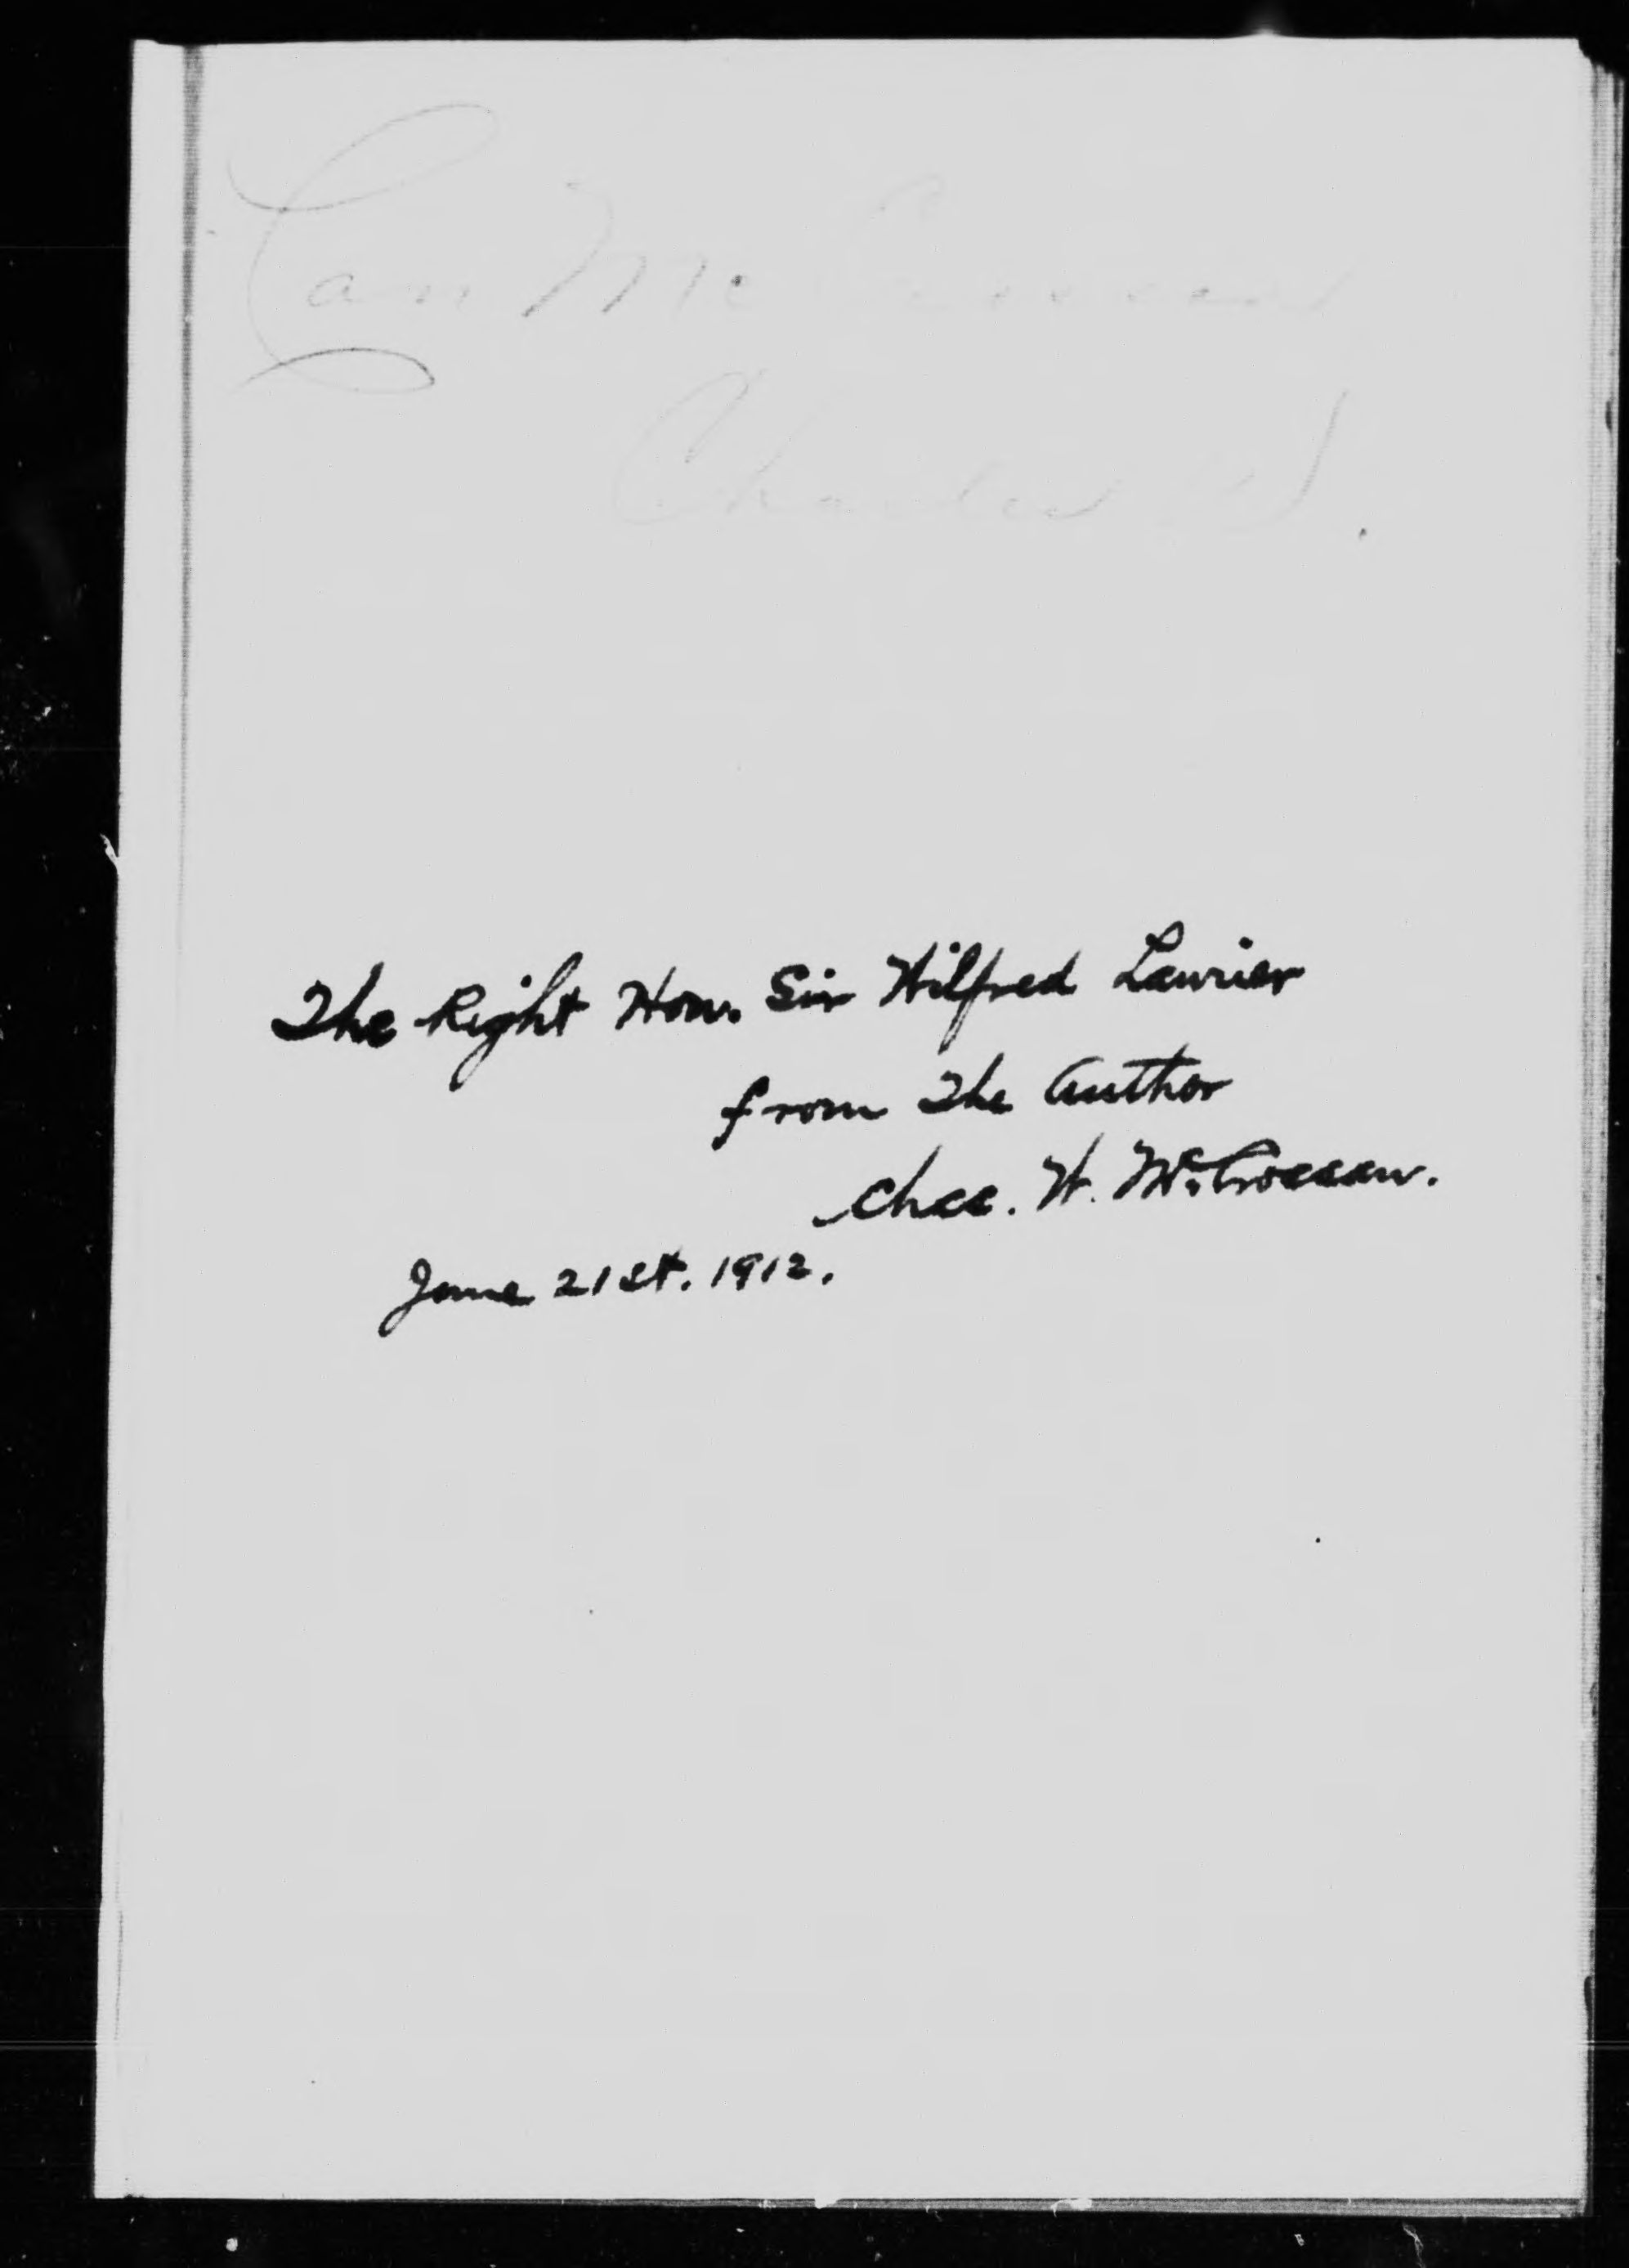 Can McCrossan
Charles W.
The Right Hon. Sir Wilfred Laurier
from The Author
Chas. W. McCrossan.
June 21st. 1912.